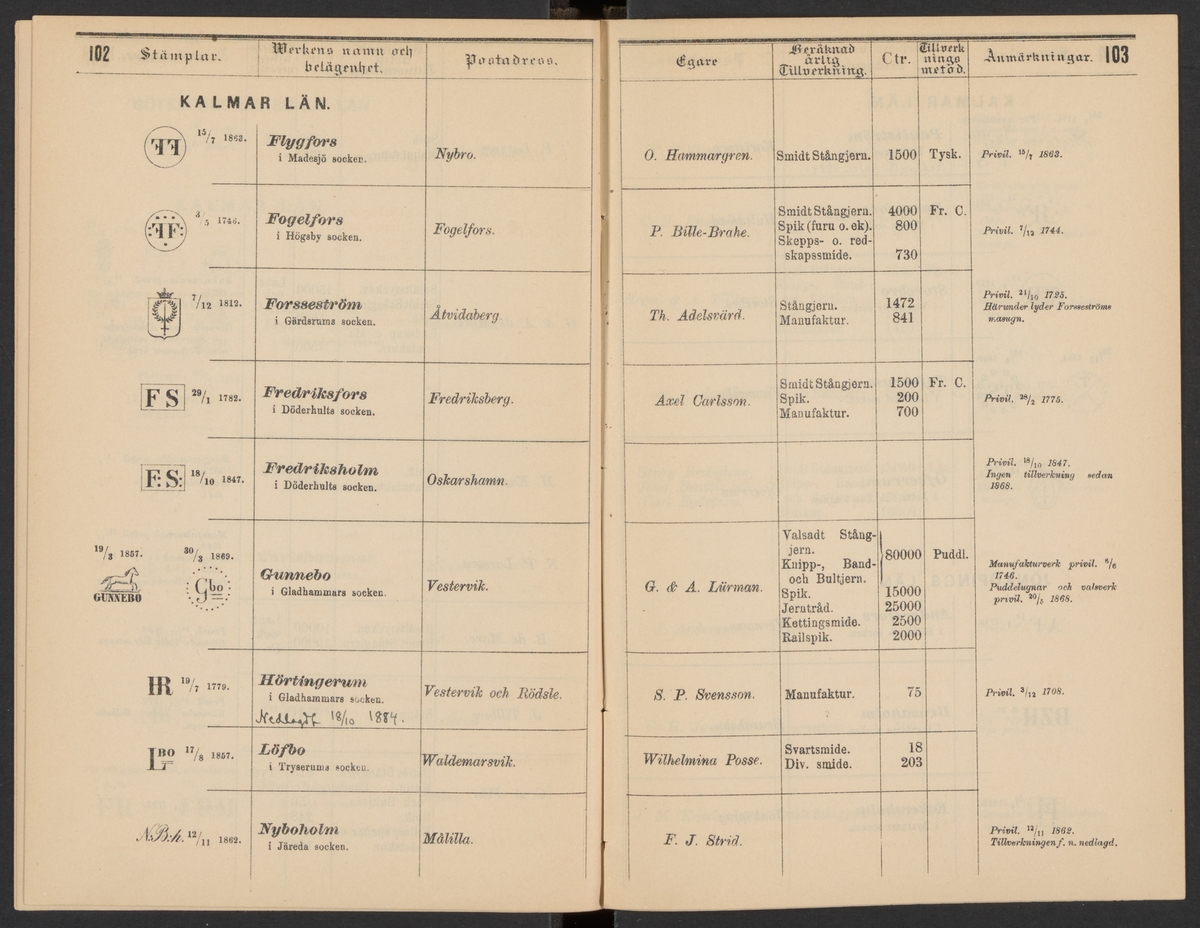 102 Stämplar. Werkens namn och belägenhet. Postadress.
KALMAR LÄN.
FF 15/7 1863. Flygfors
i Madesjö socken. Nybro.
FF 3/5 1746. Fogelfors
i Högsby socken. Fogelfors.
7/12 1812. Forsseström
i Gärdsrums socken. Åtvidaberg.
F S 29/1 1782. Fredriksfors
i Döderhults socken. Fredriksberg.
F:S: 18/10 1847. Fredriksholm
i Döderhults socken. Oskarshamn.
19/3 1857. 30/3 1869.
GUNNEBO Gbo Gunnebo
i Gladhammars socken. Vestervik.
HR 19/7 1779. Hörtingerum
i Gladhammars socken. Vestervik och Rödsle.
Nedlagdt 18/10 1884.
LBO 17/8 1857. Löfbo
i Tryserums socken. Waldemarsvik.
N:B:h. 12/11 1862. Nyboholm
i Järeda socken. Målilla.
Egare Beräknad årlig Tillverkning. Ctr. Tillverknings metod. Anmärkningar. 103
O. Hammargren. Smidt Stångjern. 1500 Tysk. Privil. 15/7 1863.
P. Bille-Brahe. Smidt Stångjern. 4000 Fr. C.
Spik (furu o. ek). 800 Privil. 7/12 1744.
Skepps- o. red-
skapssmide. 730
Th. Adelsvärd. Stångjern. 1472
Manufaktur. 841
Privil. 21/10 1725.
Härunder lyder Forsseströms
masugn.
Axel Carlsson. Smidt Stångjern. 1500 Fr. C.
Spik. 200 Privil. 28/2 1775.
Manufaktur. 700
Privil. 18/10 1847.
Ingen tillverkning sedan
1868.
G. & A. Lürman. Valsadt Stång-
jern.
Knipp-, Band-
och Bultjern. 80000 Puddl.
Spik. 15000
Jerntråd. 25000
Kettingsmide. 2500
Railspik. 2000
Manufakturverk privil. 6/6
1746.
Puddelugnar och valsverk
privil. 20/5 1868.
S. P. Svensson. Manufaktur. 75 Privil. 3/12 1708.
Wilhelmina Posse. Svartsmide. 18
Div. smide. 203
F. J. Strid. Privil. 12/11 1862.
Tillverkningen f. n. nedlagd.